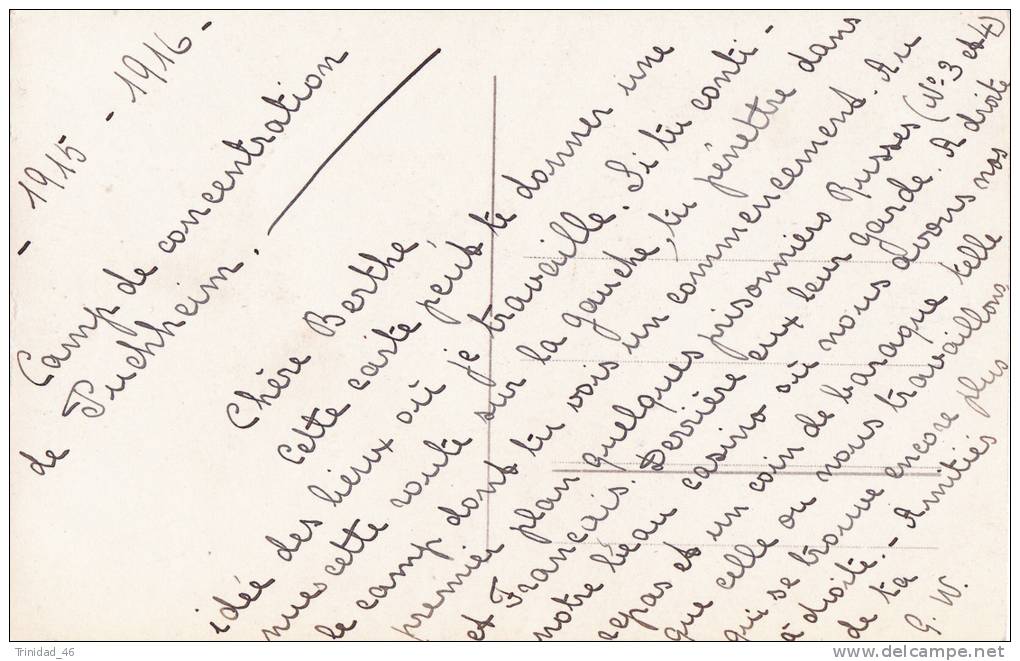 - 1915 - 1916 -
Camp de concentration
de Puchheim.
Chère Berthe
Cette carte peut te donner une
idée des lieux où je travaille. Si tu conti-
nues cette route sur la gauche, tu pénettre dans
le camp dont tu vois un commencement. Au
premier plan quelques prisonniers Russes (No 3 et 4)
et Français. Derrière eux leur garde. A droite
notre beau casino où nous avons nos
repas et un coin de baraque telle
que celle ou nous travaillons,
qui se trouve encore plus
à droite. - Amitiés
de ta
G. W.
Trinidad_46